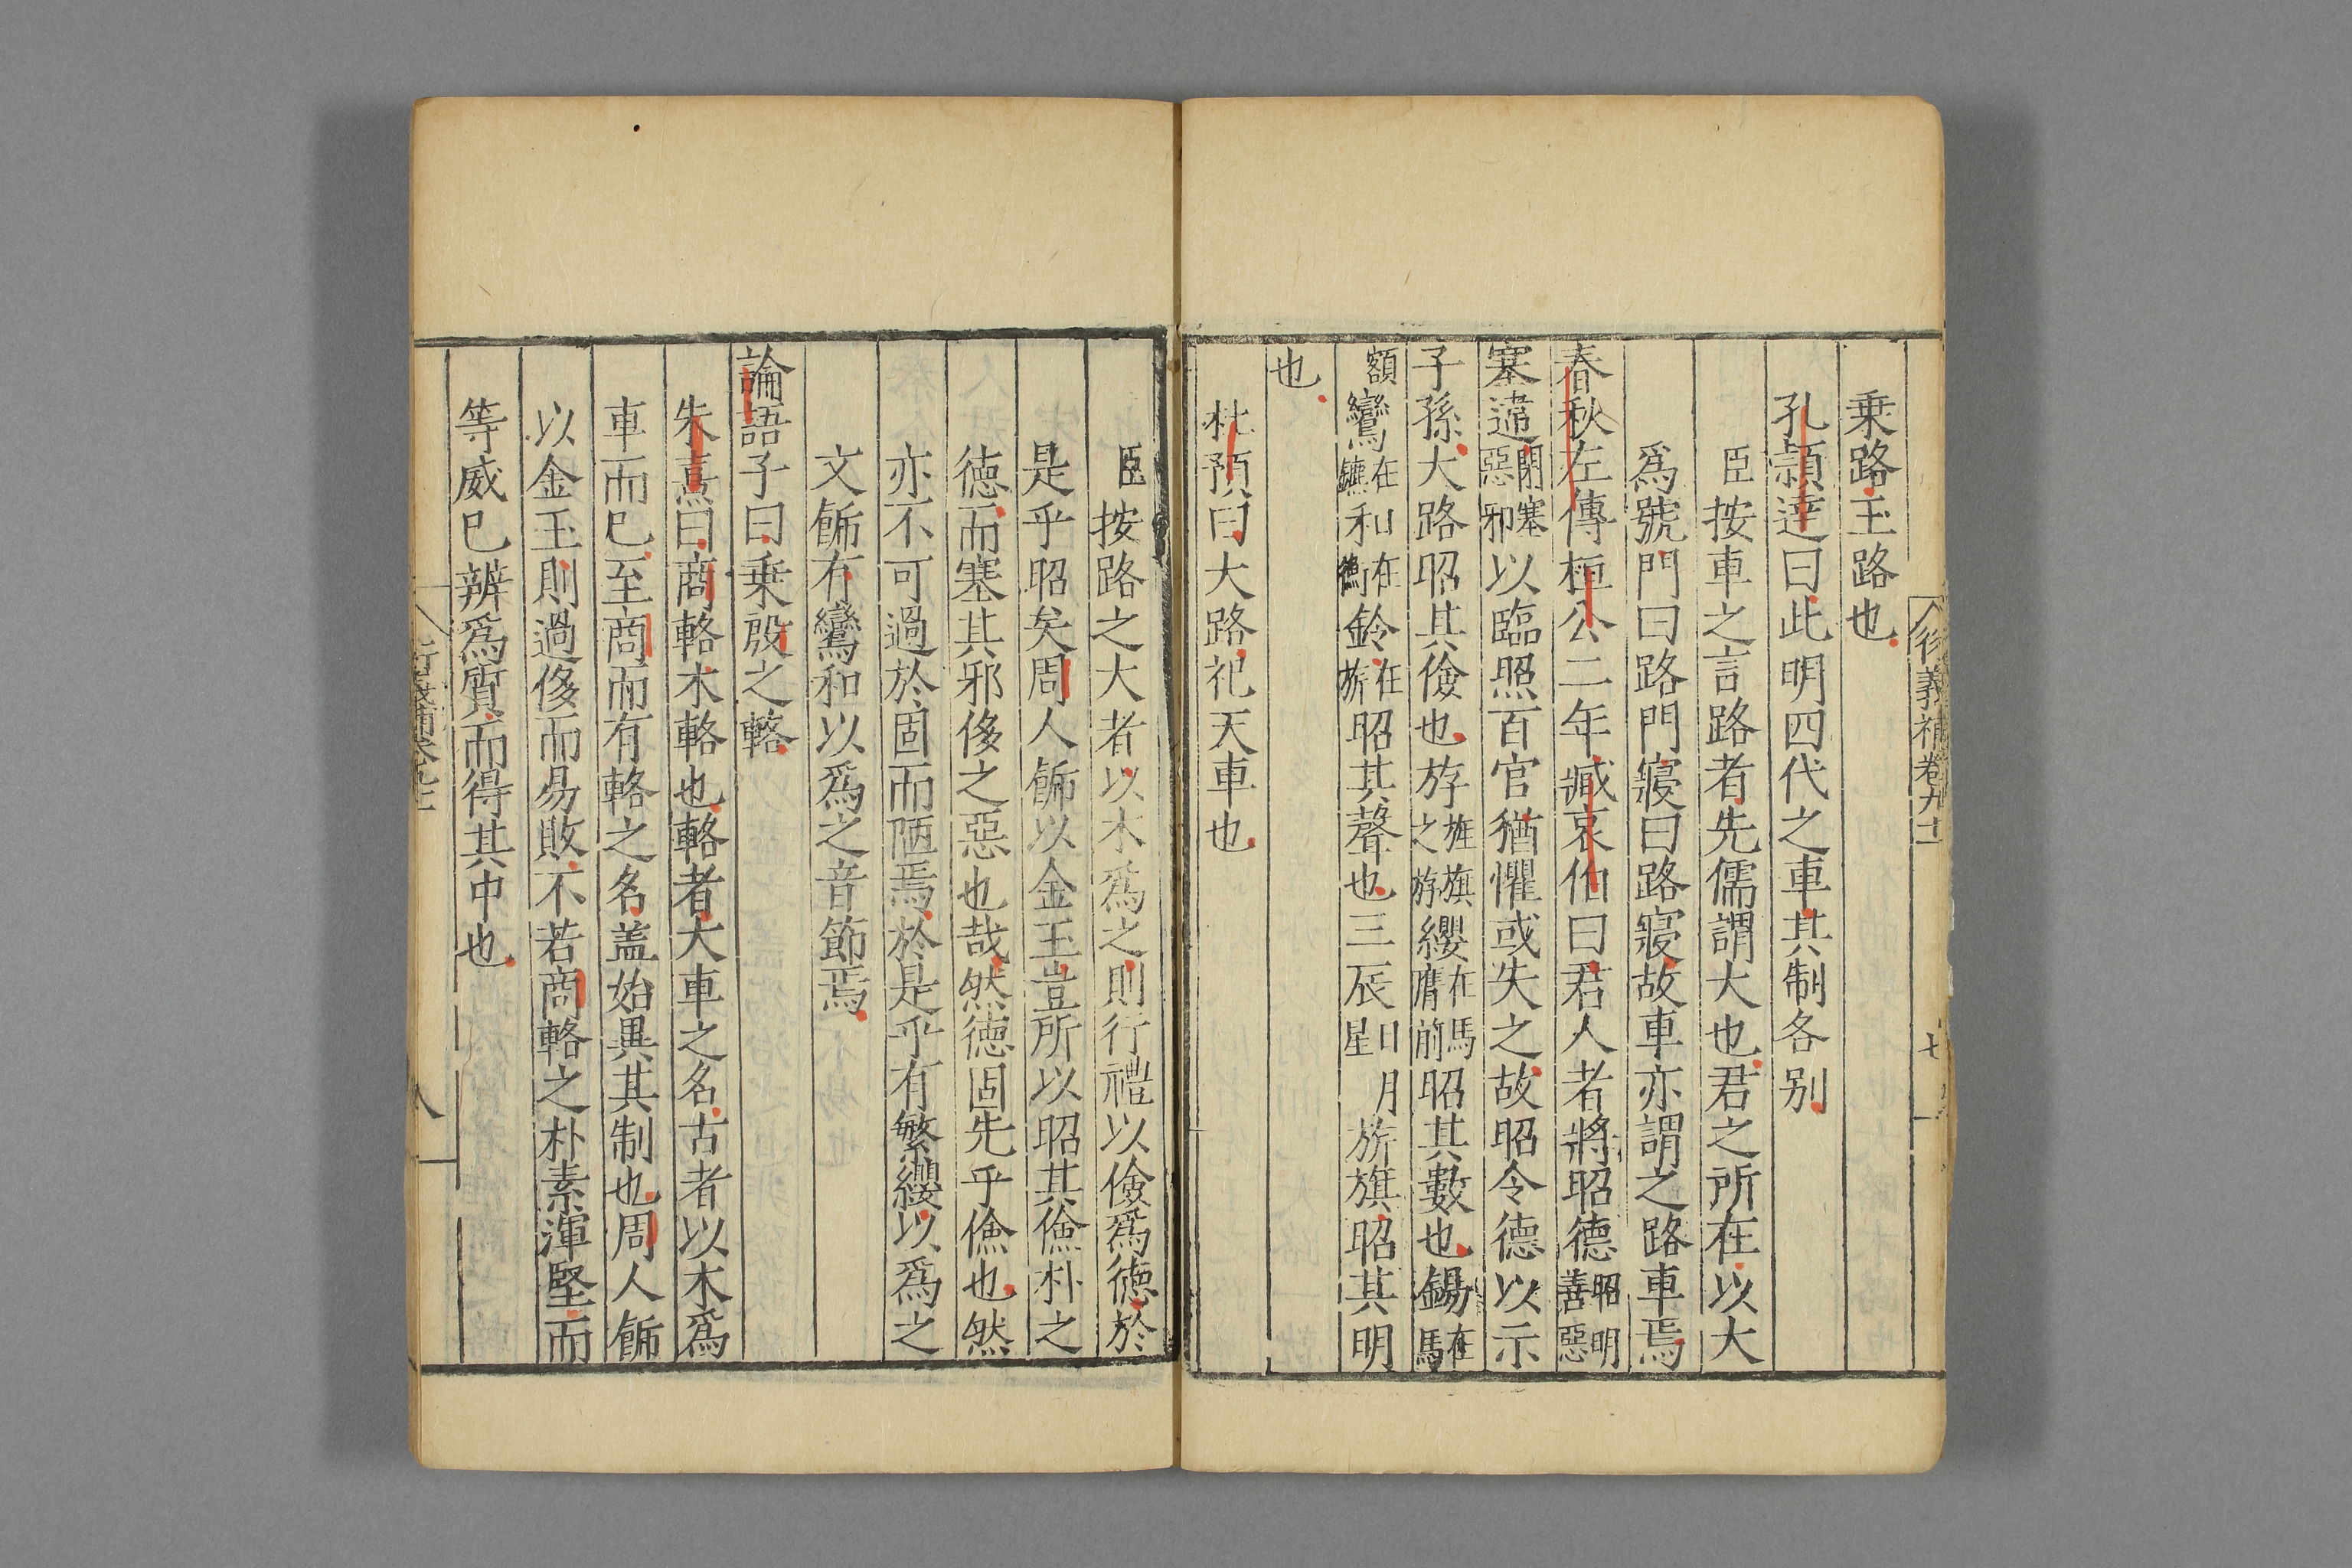 衍義補卷九十二
七
乗路王路也
孔頴達曰此明四代之車其制各别
臣按車之言路者先儒謂大也君之所在以大
爲號門曰路門寢曰路寢故車亦謂之路車焉
春秋左傳桓公二年臧哀伯曰君人者將昭德昭明善惡
塞違閉塞惡邪以臨照百官猶懼或失之故昭令德以示
子孫大路昭其儉也斿旌旗之斿纓在馬膺前昭其數也鍚在馬
額鸞在鑣和在衡鈴在旂昭其聲也三辰日月星旂旗昭其明
也
杜預曰大路祀天車也
臣按路之大者以木爲之則行禮以儉爲德於
是乎昭矣周人餙以金玉豈所以昭其儉朴之
德而塞其邪侈之惡也哉然德固先乎儉也然
亦不可過於固而陋焉於是乎有繁纓以爲之
文餙有鸞和以爲之音節焉
論語子曰乗殷之輅
朱熹曰商輅木輅也輅者大車之名古者以木爲
車而巳至商而有輅之名盖始異其制也周人餙
以金玉則過侈而易敗不若商輅之朴素渾堅而
等威巳辨爲質而得其中也
八